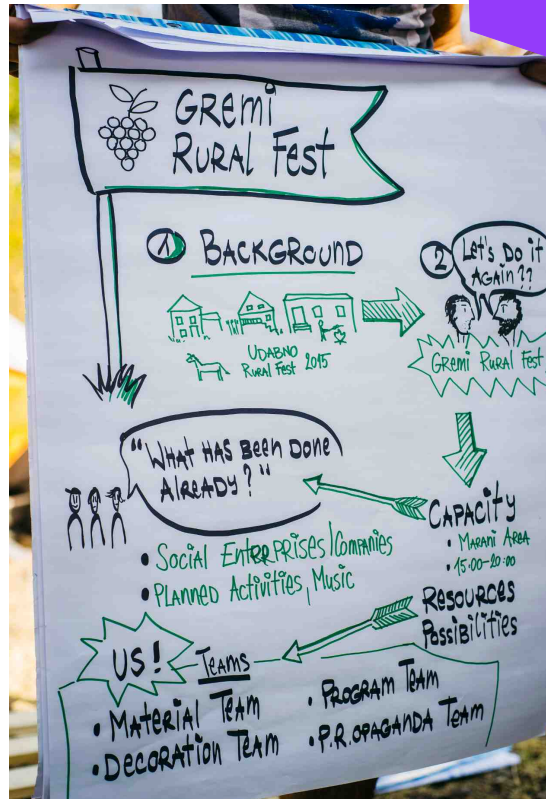 GREMI
RURAL FEST
1 BACKGROUND
UDABNO
RURAL FEST 2015
2
LET'S DO IT
AGAIN??
GREMI RURAL FEST
"WHAT HAS BEEN DONE
ALREADY?"
• SOCIAL ENTRRPRISES/COMPANIES
• PLANNED ACTIVITIES, MUSIC
CAPACITY
• MARANI AREA
• 15:00-20:00
RESOURCES
POSSIBILITIES
US!
TEAMS
• MATERIAL TEAM
• DECORATION TEAM
• PROGRAM TEAM
• P.R.OPAGANDA TEAM